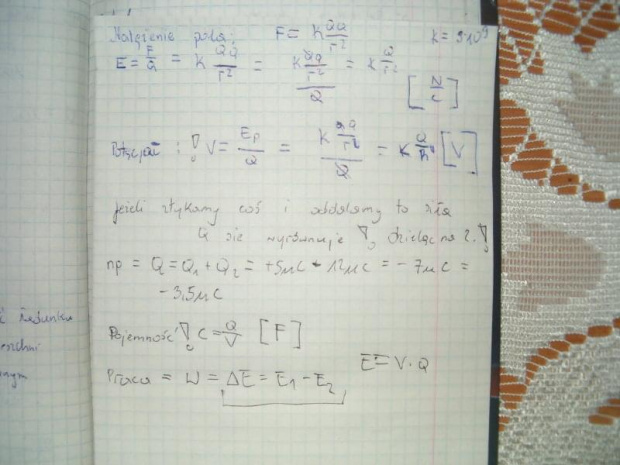 Natężenie pola: F = k QQ/r² k = 9·10⁹
E = F/Q = k QQ/r² = (k Qq/r²)/Q = k Q/r² [N/C]
Potencjał : V = Ep/Q = /Q = k Q/R [V]
jeżeli stykamy coś i oddalamy to siła
Q się wyrównuje dzieląc na 2.
np = Q = Q₁ + Q₂ = +5μC - 12μC = -7μC =
-3,5μC
Pojemność C = Q/V [F]
E = V·Q
Praca = W = ΔE = E₁ - E₂